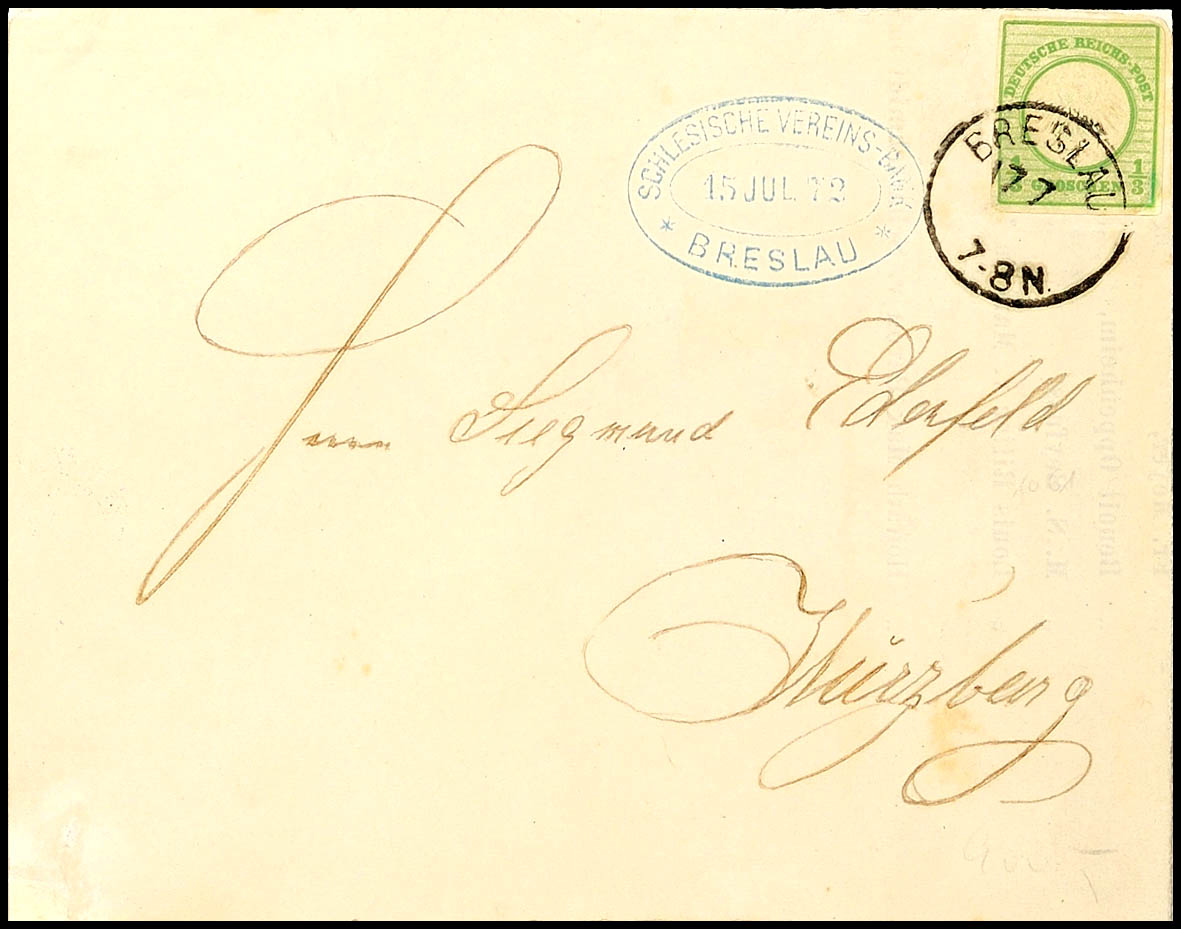 DEUTSCHE REICHS-POST
1/3 GROSCHEN 1/3
SCHLESISCHE VEREINS-BANK
15 JUL 72
* BRESLAU *
BRESLAU
17 7
7-8 N.
Herrn Siegmund Ederfeld
Würzburg